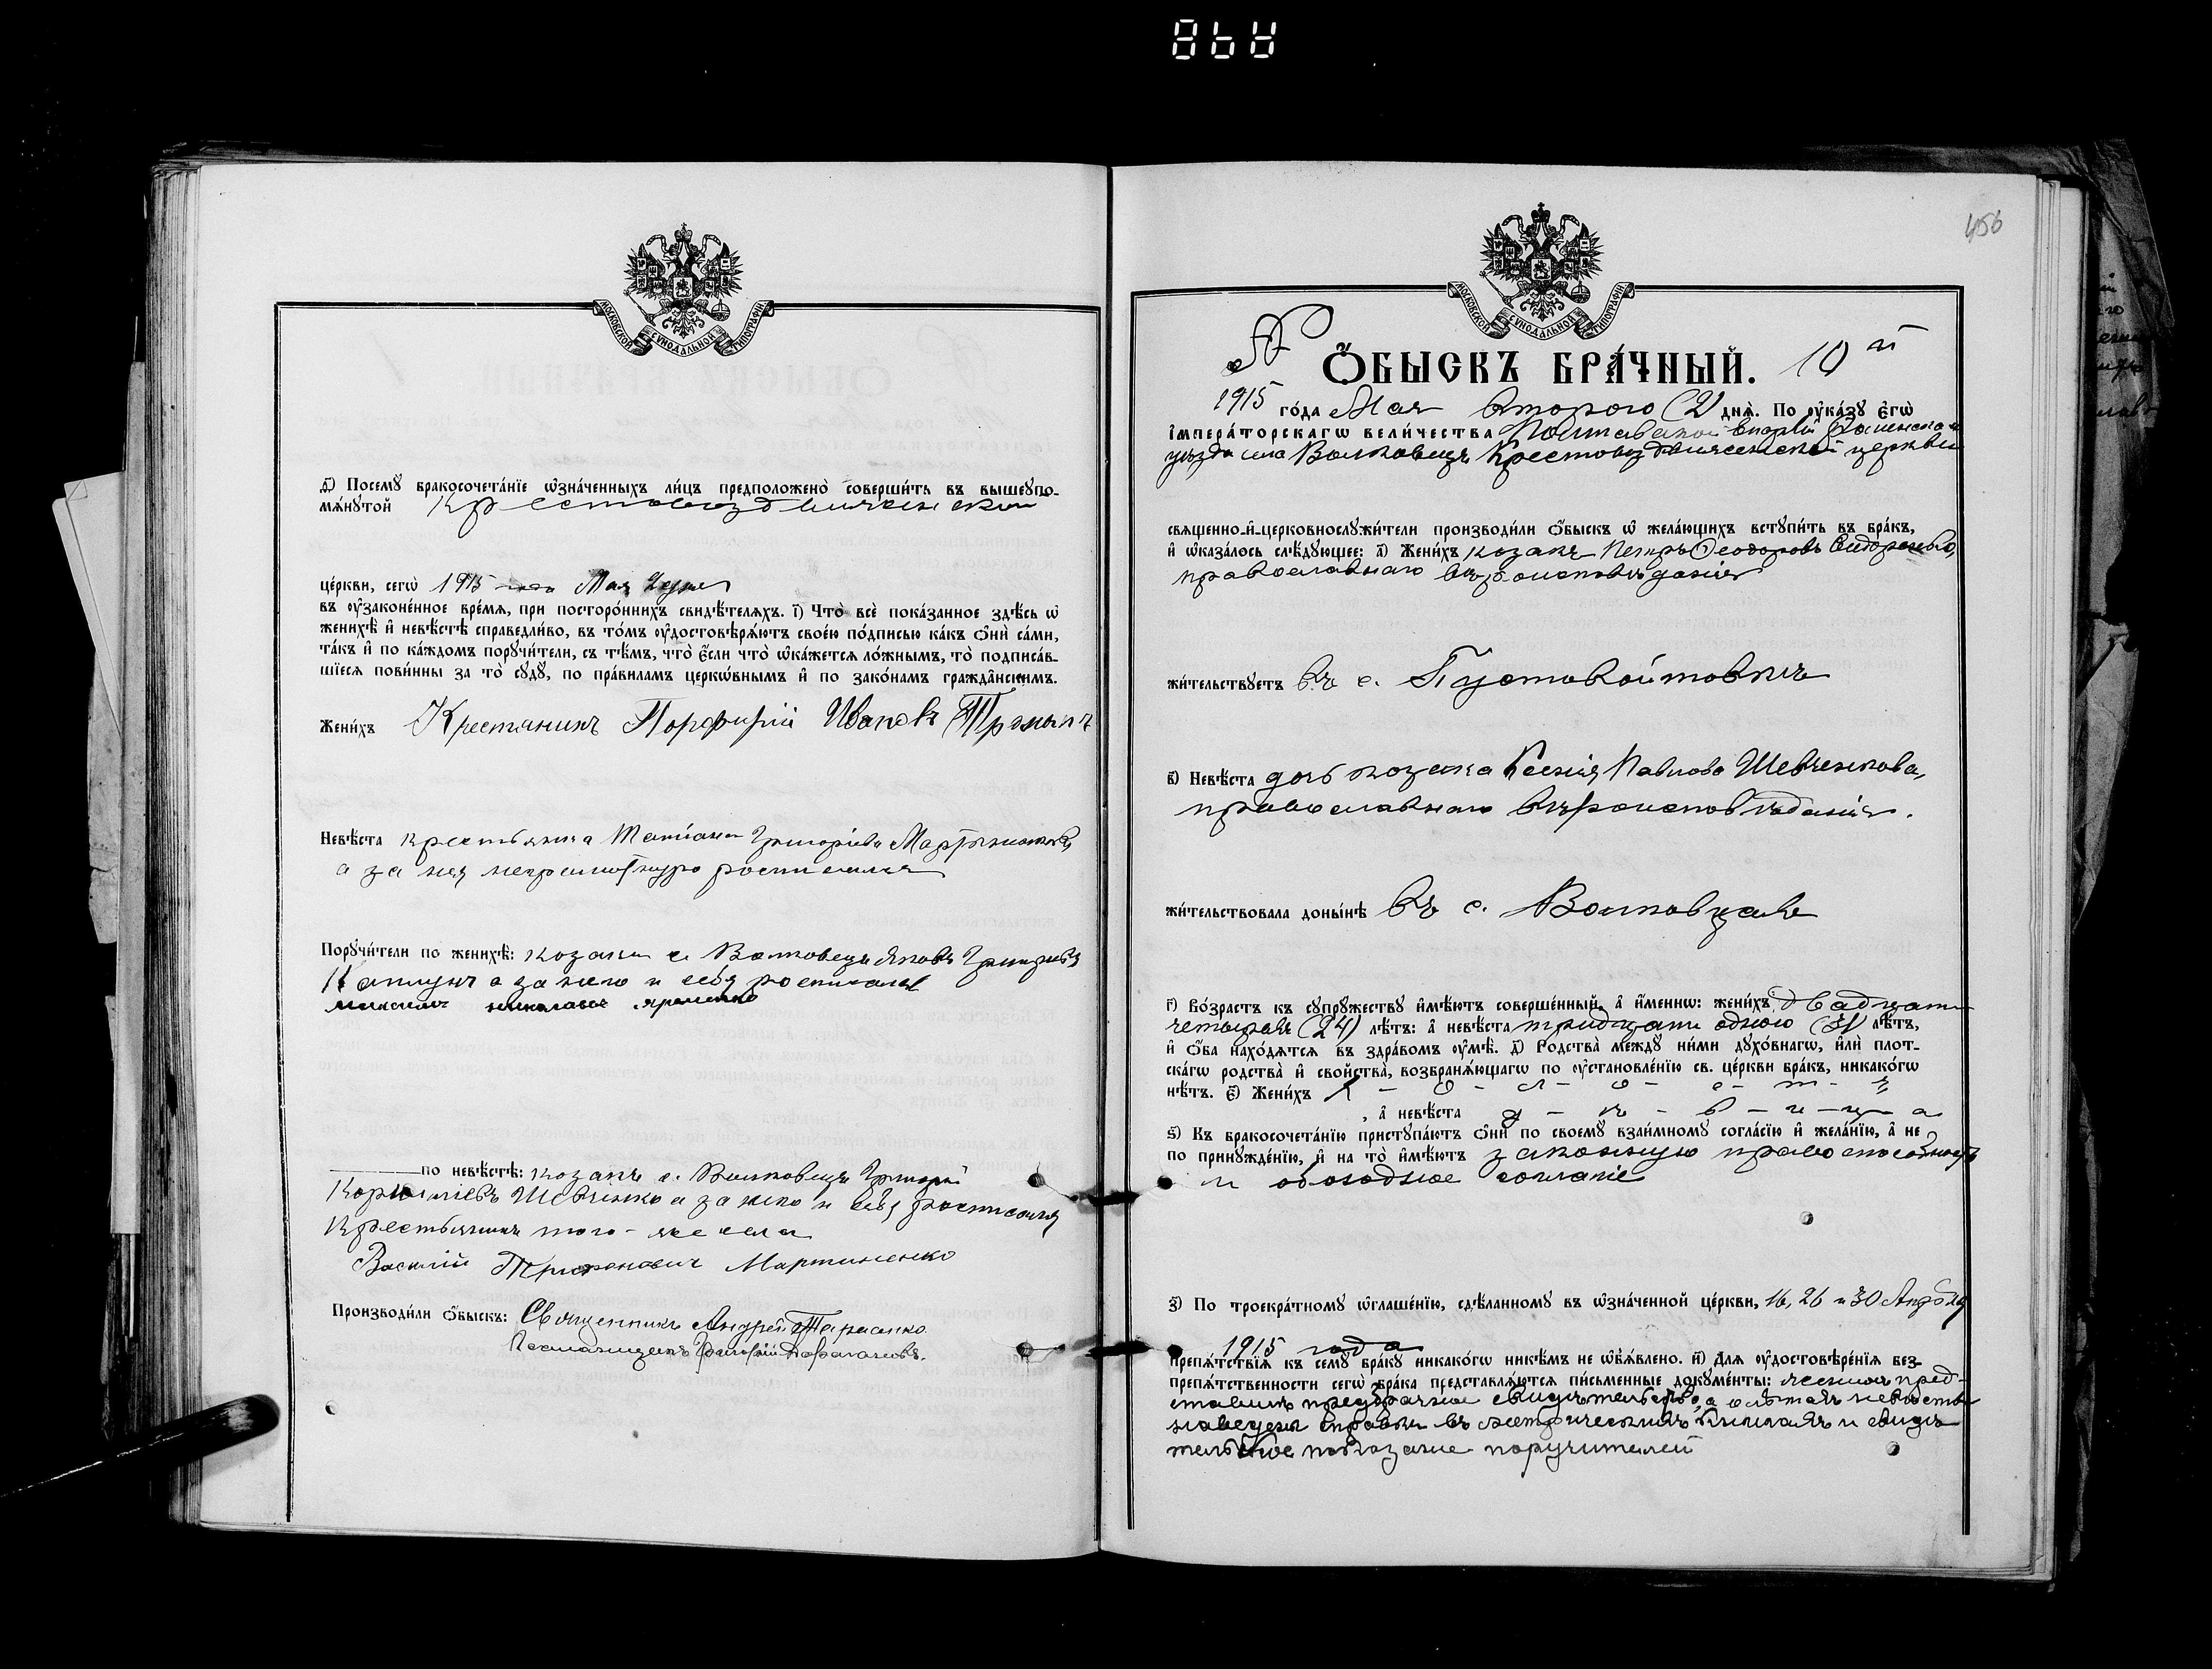 456
МОСКОВСКОЙ СУНОДАЛЬНОЙ ТИПОГРАФІИ
ѳ҃) Посемꙋ̀ бракосочета́нїе ѡ҆зна́ченныхъ ли́цъ предположено̀ соверши́ть въ вышеꙋпо-
мѧ́нꙋтой Крестовоздвиженской
це́ркви, сегѡ̀ 1915 года Мая
въ ᲂу҆законе́нное вре́мѧ, при посторо́ннихъ свидѣ́телѧхъ. і҃) Что̀ всѐ пока́занное здѣ́сь ѡ҆
женихѣ̀ и҆ невѣ́стѣ справедли́во, въ то́мъ ᲂу҆достовѣрѧ́ютъ свое́ю по́дписью ка́къ ѻ҆нѝ са́ми,
та́къ и҆ по ка́ждомъ порꙋчи́тели, съ тѣ́мъ, что̀ є҆́сли что̀ ѡ҆ка́жетсѧ ло́жнымъ, то̀ подписа́в-
шїесѧ пови́нны за то̀ сꙋдꙋ̀, по пра́виламъ церкѡ́внымъ и҆ по зако́намъ гражда̂нскимъ.
Жени́хъ Крестянинъ Порфирій Ивановъ
Невѣ́ста крестьянка Татіана Григоріева
а за нея неграмотную росписался
Порꙋчи́тели по женихѣ̀: козакъ с. Волковецъ Яковъ Григорьевъ
а за него и себя росписался
николаевъ яременко
по невѣ́стѣ: козакъ с. Волковецъ Григорій
Корниліевъ Шевченко а за него и себя росписался
Крестьянинъ того-же села
Василій Трифонович Мартиненко
Производи́ли ѻ҆́быскъ: Священникъ Андрей
Псаломщикъ Григорій
МОСКОВСКОЙ СУНОДАЛЬНОЙ ТИПОГРАФІИ
№ Ѻ҆́БЫСКЪ БРА́ЧНЫЙ. 10й
1915 го́да Мая второго (2) днѧ̀. По ᲂу҆ка́зꙋ є҆гѡ̀
і҆мпера́торскагѡ вели́чества Полтавской епархіи Роменскаго
уѣзда села Волковецъ Крестовоздвиженской церкви
свѧще́нно-и҆-церковнослꙋжи́тели производи́ли ѻ҆́быскъ ѡ҆ жела́ющихъ встꙋпи́ть въ бра́къ,
и҆ ѡ҆каза́лось слѣ́дꙋющее: а҃) Жени́хъ козакъ Петръ Ѳеодоровъ Сидоренко,
православнаго вѣроисповѣданія
жи́тельствꙋетъ въ с. Пустовойтовкѣ
в҃) Невѣ́ста дочь козака Ксенія Павлова Шевченкова,
православнаго вѣроисповѣданія.
жи́тельствовала доны́нѣ въ с. Волковцахъ
г҃) Во́зрастъ къ сꙋпрꙋ́жествꙋ и҆мѣ́ютъ соверше́нный, а҆ и҆́меннѡ: жени́хъ двадцати
четырехъ (24) лѣ́тъ: а҆ невѣ́ста тридцати одного (31) лѣ́тъ,
и҆ ѻ҆́ба нахо́дѧтсѧ въ здра́вомъ ᲂу҆мѣ̀. д҃) Родства̀ междꙋ̀ ни́ми дꙋхо́внагѡ, и҆лѝ плот-
ска́гѡ родства̀ и҆ сво́йства̀, возбранѧ́ющагѡ по ᲂу҆становле́нїю св. це́ркви бра́къ, никако́гѡ
нѣ́тъ. є҃) Жени́хъ х - о - л - о - с - т - ъ
, а҆ невѣ́ста д - ѣ - в - и - ц - а
ѕ҃) Къ бракосочета́нїю пристꙋпа́ютъ ѻ҆нѝ по своемꙋ̀ взаи́мномꙋ согла́сїю и҆ жела́нїю, а҆ не
по принꙋжде́нїю, и҆ на то̀ и҆мѣ́ютъ законную правоспособность
и обоюдное согласіе
з҃) По троекра́тномꙋ ѡ҆глаше́нїю, сдѣ́ланномꙋ въ ѡ҆зна́ченной це́ркви, 16, 26 и 30 Апрѣля
1915 года
препѧ́тствїѧ къ семꙋ̀ бра́кꙋ никако́гѡ никѣ́мъ не ѡ҆б̾ѧ́влено. и҃) Длѧ ᲂу҆достовѣре́нїѧ без-
препѧ́тственности сегѡ̀ бра́ка представлѧ́ютсѧ пи́сьменные докꙋме́нты: женихъ пред-
ставилъ предбрачное свидѣтельство, а о лѣтахъ невѣсты
наведены справки въ метрическихъ книгахъ и свидѣ
тельское показаніе поручителей